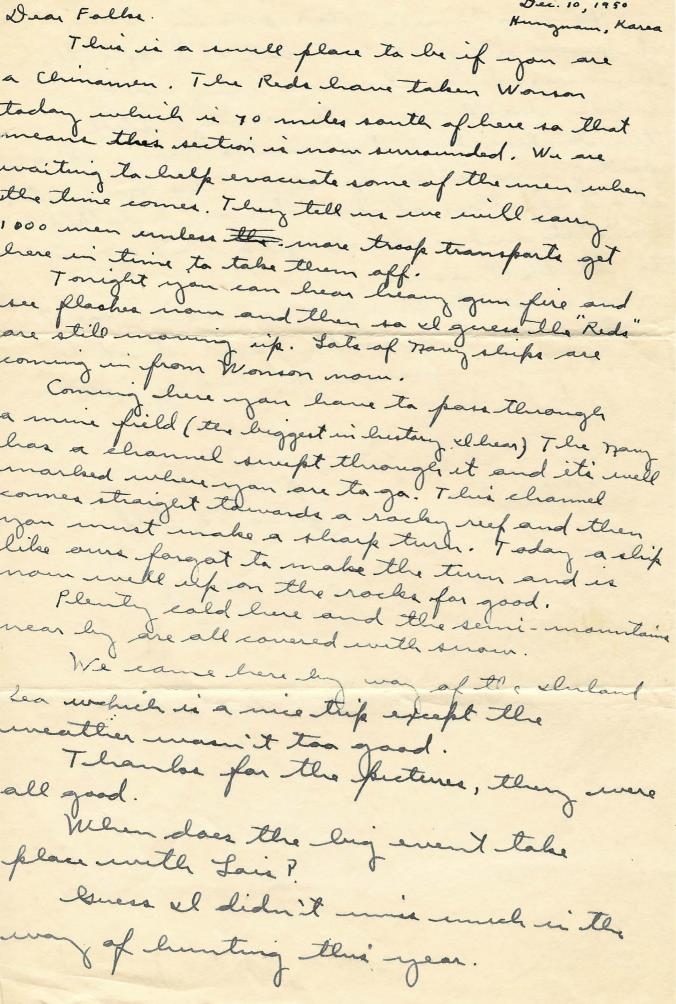 Dec. 10, 1950
Hungnam, Korea
Dear Folks.
This is a swell place to be if you are
a Chinamen. The Reds have taken Wonson
today which is 70 miles south of here so that
means this section is now surrounded. We are
waiting to help evacuate some of the men when
the time comes. They tell us we will carry
1000 men unless the more troop transports get
here in time to take them off.
Tonight you can hear heavy gun fire and
see flashes now and then so I guess the "Reds"
are still moving up. Lots of Navy ships are
coming in from Wonson now.
Coming here you have to pass through
a mine field (the biggest in history I hear) The Navy
has a channel swept through it and it's well
marked where you are to go. This channel
comes straight towards a rocky reef and then
you must make a sharp turn. Today a ship
like ours forgot to make the turn and is
now well up on the rocks for good.
Plenty cold here and the semi-mountains
near by are all covered with snow.
We came here by way of the Inland
Sea which is a nice trip except the
weather wasn't too good.
Thanks for the pictures, they were
all good.
When does the big event take
place with Lois?
Guess I didn't miss much in the
way of hunting this year.